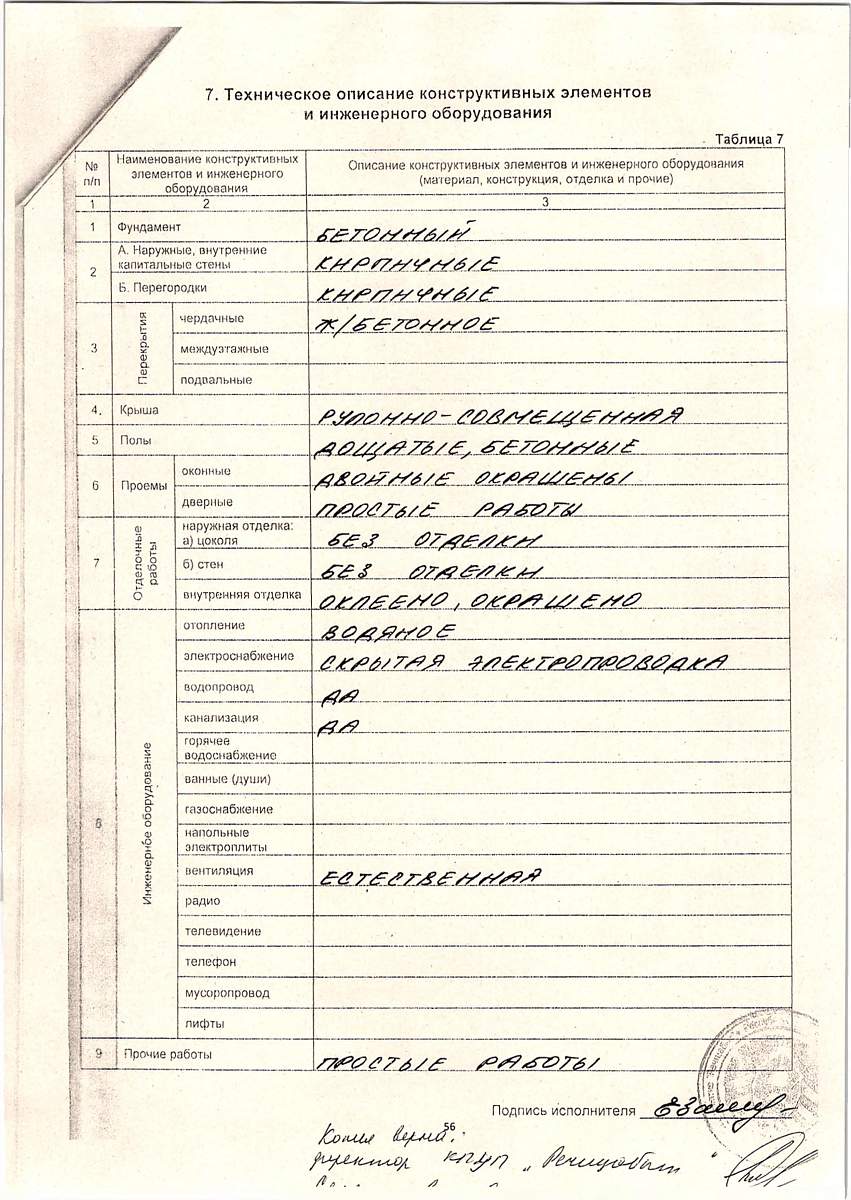 7. Техническое описание конструктивных элементов
и инженерного оборудования
Таблица 7
№ п/п Наименование конструктивных элементов и инженерного оборудования Описание конструктивных элементов и инженерного оборудования (материал, конструкция, отделка и прочие)
1 2 3
1 Фундамент БЕТОННЫЙ
2 А. Наружные, внутренние капитальные стены КИРПИЧНЫЕ
Б. Перегородки КИРПИЧНЫЕ
3 Перекрытия чердачные Ж/БЕТОННОЕ
междуэтажные
подвальные
4. Крыша РУЛОННО-СОВМЕЩЕННАЯ
5 Полы ДОЩАТЫЕ, БЕТОННЫЕ
6 Проемы оконные ДВОЙНЫЕ ОКРАШЕНЫ
дверные ПРОСТЫЕ РАБОТЫ
7 Отделочные работы наружная отделка:
а) цоколя БЕЗ ОТДЕЛКИ
б) стен БЕЗ ОТДЕЛКИ
внутренняя отделка ОКЛЕЕНО, ОКРАШЕНО
8 Инженерное оборудование отопление ВОДЯНОЕ
электроснабжение СКРЫТАЯ ЭЛЕКТРОПРОВОДКА
водопровод ДА
канализация ДА
горячее водоснабжение
ванные (души)
газоснабжение
напольные электроплиты
вентиляция ЕСТЕСТВЕННАЯ
радио
телевидение
телефон
мусоропровод
лифты
9 Прочие работы ПРОСТЫЕ РАБОТЫ
Подпись исполнителя
56
Копия верна:
директор КПУП „Речицабыт"